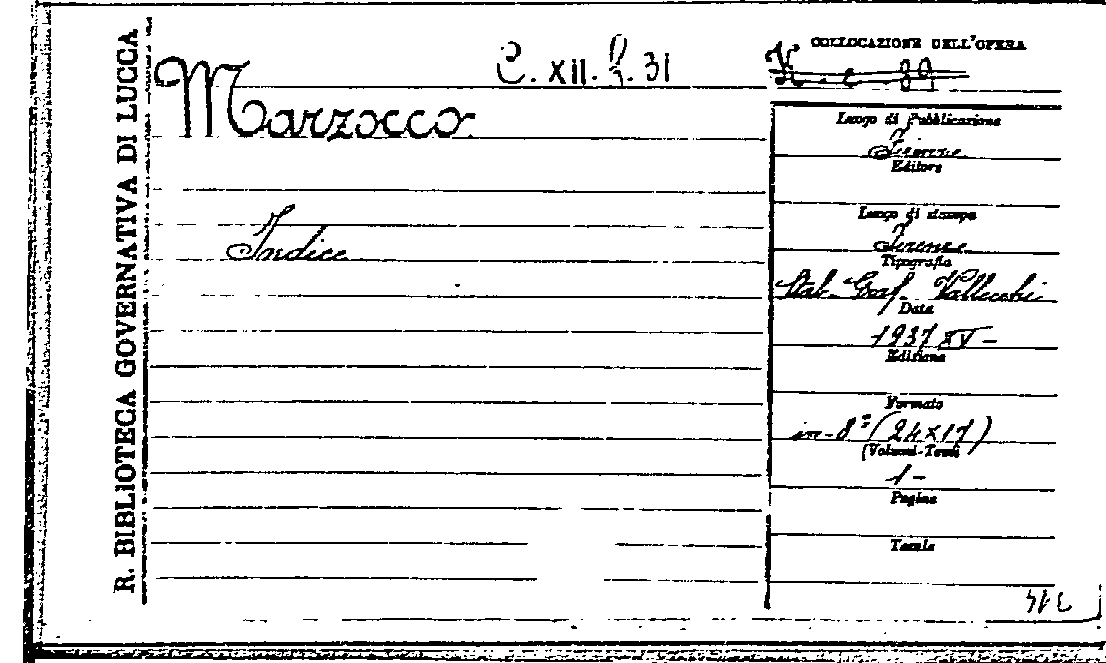 R. BIBLIOTECA GOVERNATIVA DI LUCCA
C. XII. 31
Marzocco
Indice
COLLOCAZIONE DELL'OPERA
89
Luogo di Pubblicazione
Firenze
Editore
Luogo di stampa
Firenze
Tipografia
Stab. Graf. Vallecchi
Data
1937 XV -
Edizione
Formato
in-8º (24×17)
(Volumi-Tomi
1 -
Pagine
Tavole